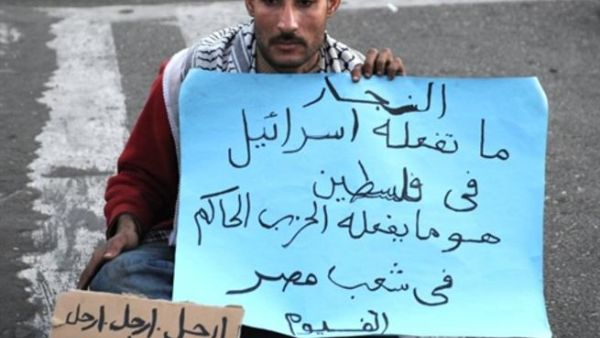 النجار
ما تفعله اسرائيل
في فلسطين
هو ما يفعله الحزب الحاكم
في شعب مصر
الفيوم
ارحل. ارحل. ارحل